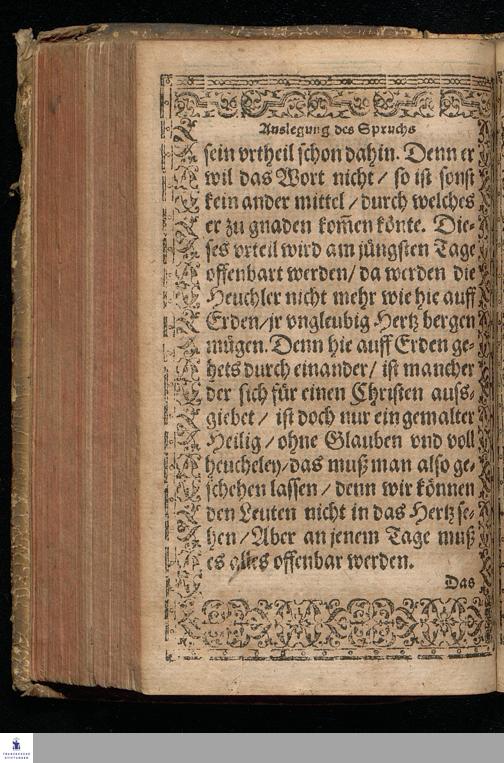 Auslegung des Spruchs
sein vrtheil schon dahin. Denn er
wil das Wort nicht / so ist sonst
kein ander mittel / durch welches
er zu gnaden kom̃en könte. Die⸗
ses vrteil wird am jüngsten Tage
offenbart werden / da werden die
Heuchler nicht mehr wie hie auff
Erden / jr vngleubig Hertz bergen
mügen. Denn hie auff Erden ge⸗
hets durch einander / ist mancher
der sich für einen Christen auss⸗
giebet / ist doch nur ein gemalter
Heilig / ohne Glauben vnd voll
heucheley / das muß man also ge⸗
schehen lassen / denn wir können
den Leuten nicht in das Hertz se⸗
hen / Aber an jenem Tage muß
es alles offenbar werden.
Das
FRANCKESCHE
STIFTUNGEN